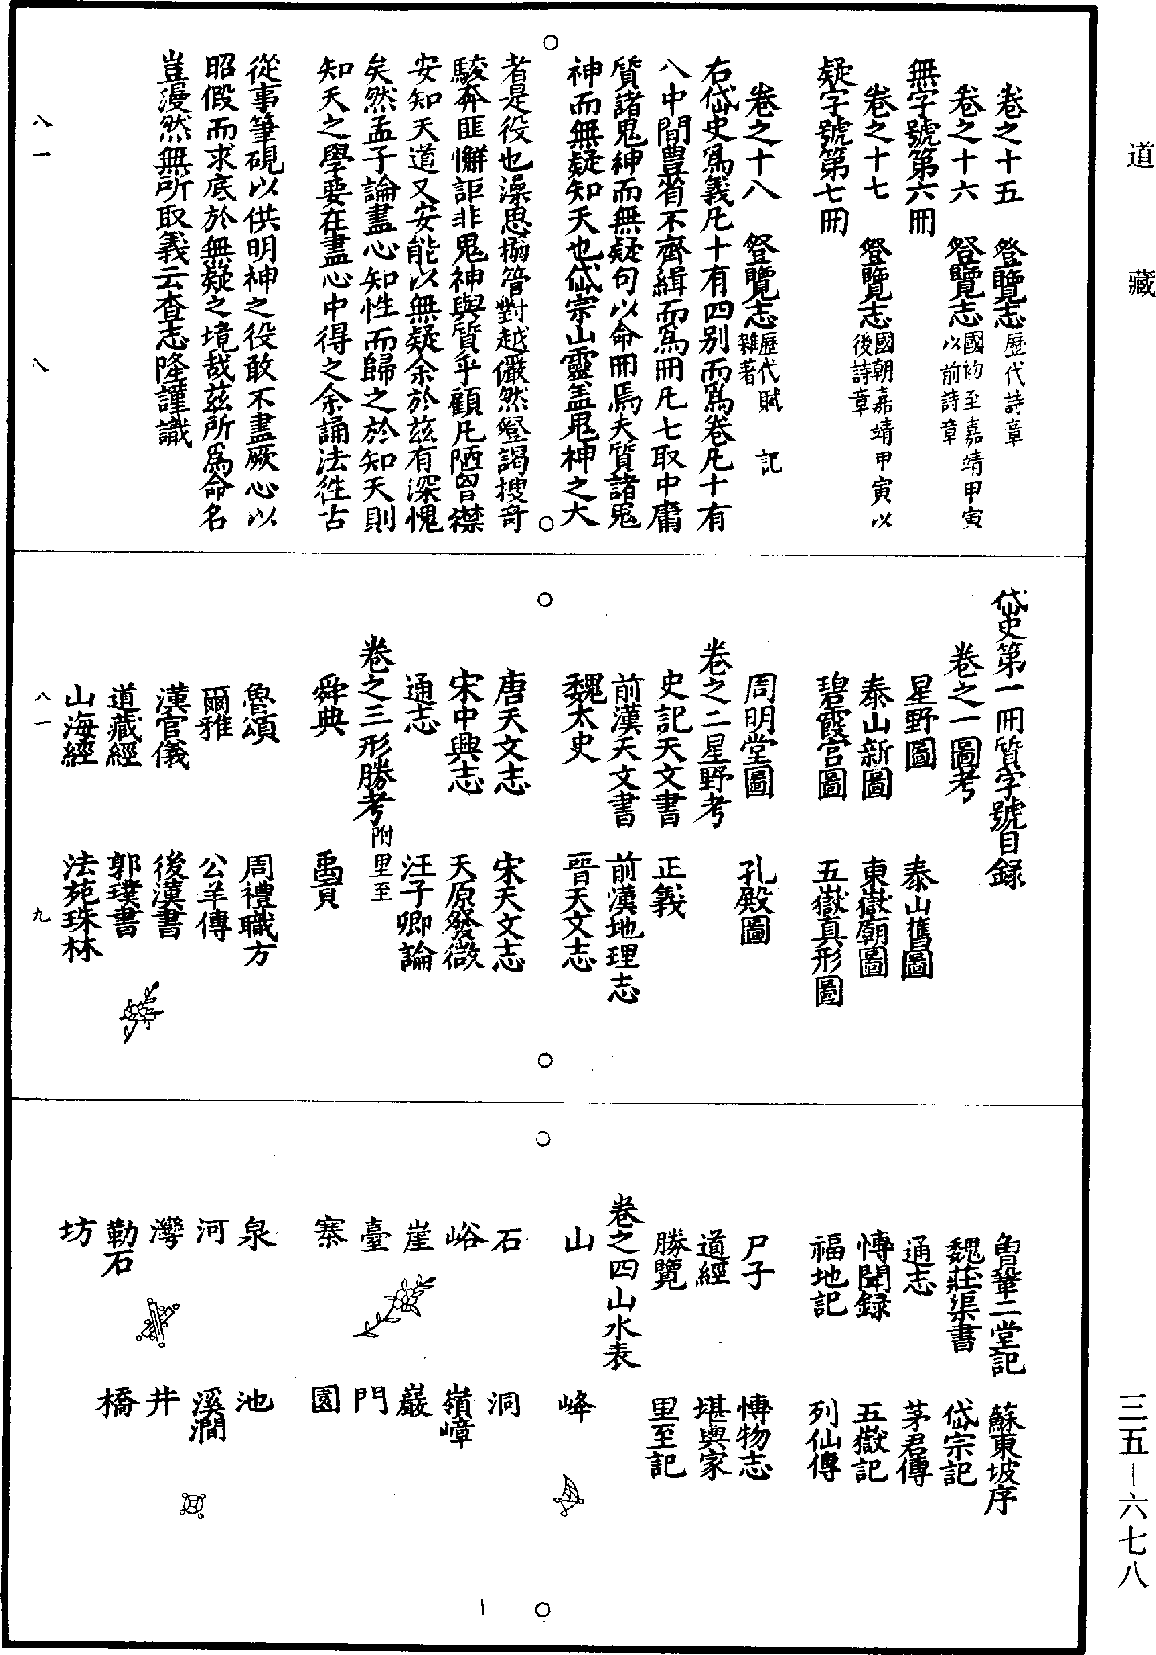 道藏
卷之十五　登覽志歷代詩章
卷之十六　登覽志國初至嘉靖甲寅以前詩章
無字號第六冊
卷之十七　登覽志國朝嘉靖甲寅以後詩章
疑字號第七冊
卷之十八　登覽志歷代賦　記雜著
右岱史爲義凡十有四别而爲卷凡十有
八中間豊省不齊緝而爲冊凡七取中庸
質諸鬼神而無疑句以命冊焉夫質諸鬼
神而無疑知天也岱宗山靈盖鬼神之大
者是役也澡思搦管對越儼然登謁搜奇
駿奔匪懈詎非鬼神與質乎顧凡陋曾襟
安知天道又安能以無疑余於兹有深愧
矣然孟子論盡心知性而歸之於知天則
知天之學要在盡心中得之余誦法徃古
從事筆硯以供明神之役敢不盡厥心以
昭假而求底於無疑之境哉兹所爲命名
豈漫然無所取義云查志隆謹識
八一　八
岱史第一冊質字號目録
卷之一圖考
星野圖　泰山舊圖
泰山新圖　東嶽廟圖
碧霞宮圖　五嶽真形圖
周明堂圖　孔殿圖
卷之二星野考
史記天文書　正義
前漢天文書　前漢地理志
魏太史　晉天文志
唐天文志　宋天文志
宋中興志　天原發微
通志　汪子卿論
卷之三形勝考附里至
舜典　禹貢
魯頌　周禮職方
爾雅　公羊傳
漢官儀　後漢書
道藏經　郭璞書
山海經　法苑珠林
八一　九
魯筆二堂記　蘇東坡序
魏莊渠書　岱宗記
通志　茅君傳
愽聞録　五嶽記
福地記　列仙傳
尸子　愽物志
道經　堪輿家
勝覽　里至記
卷之四山水表
山　峰
石　洞
峪　嶺嶂
崖　巖
臺　門
寨　園
泉　池
河　溪澗
灣　井
勒石　橋
坊
三五—六七八